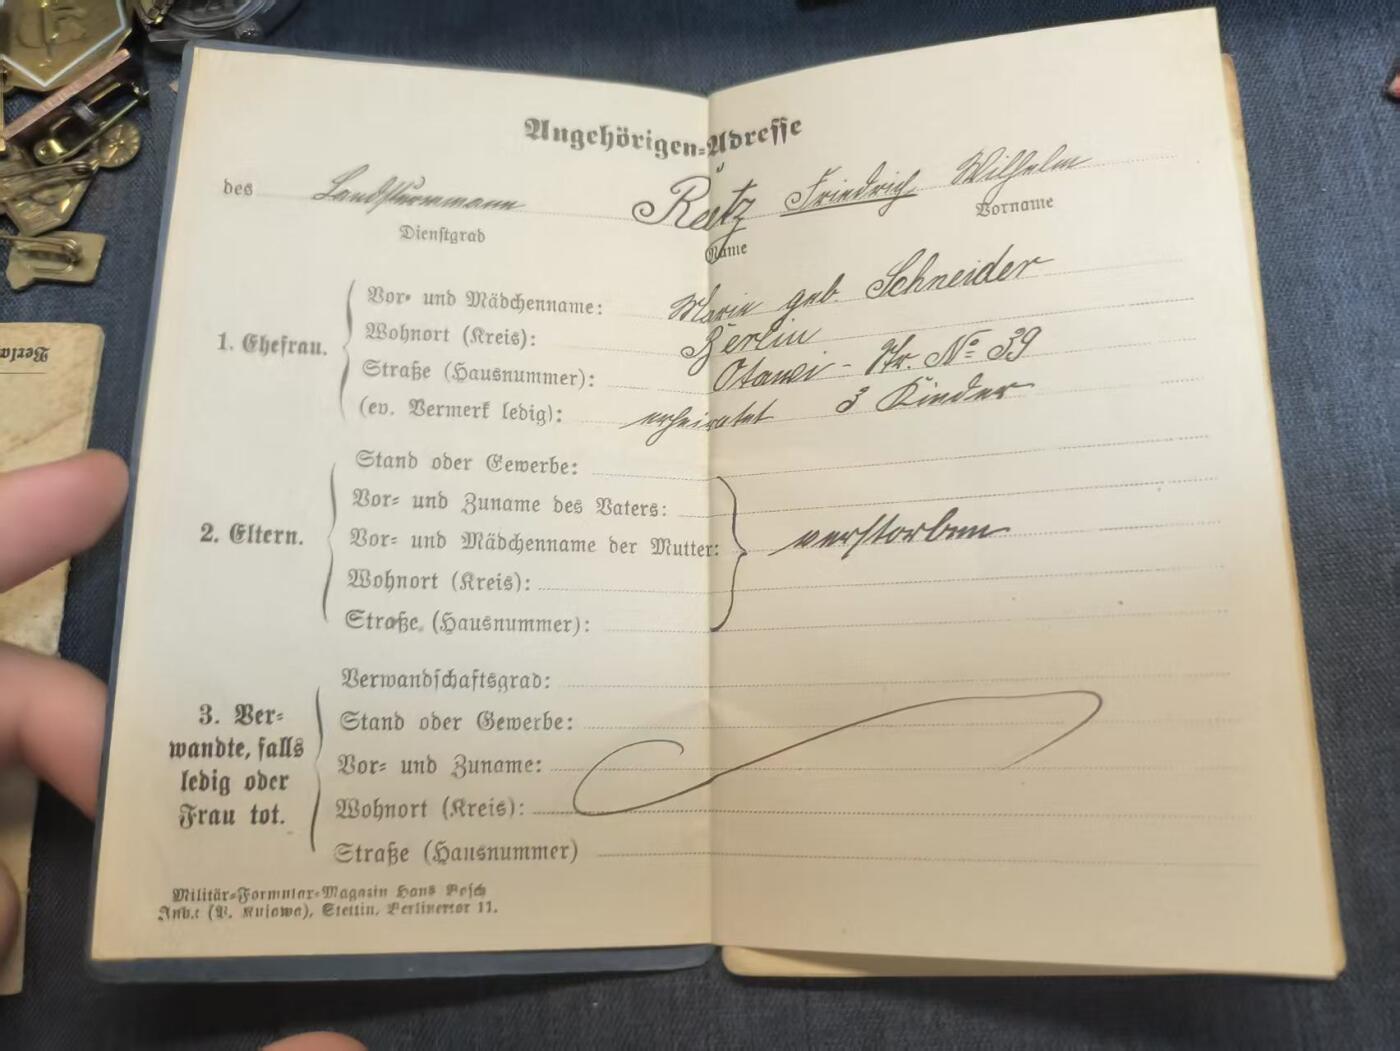 Angehörigen-Adresse
des Landsturmmann Reitz Friedrich Wilhelm
Dienstgrad Name Vorname
1. Ehefrau.
Vor- und Mädchenname: Marie geb. Schneider
Wohnort (Kreis): Berlin
Straße (Hausnummer): Otawi-Str. No 39
(ev. Vermerk ledig): verheiratet 3 Kinder
2. Eltern.
Stand oder Gewerbe:
Vor- und Zuname des Vaters:
Vor- und Mädchenname der Mutter: verstorben
Wohnort (Kreis):
Straße (Hausnummer):
3. Verwandte, falls ledig oder Frau tot.
Verwandschaftsgrad:
Stand oder Gewerbe:
Vor- und Zuname:
Wohnort (Kreis):
Straße (Hausnummer)
Militär-Formular-Magazin Hans Pesch
Inh.: (P. Kujawa), Stettin, Berlinertor 11.
Verla